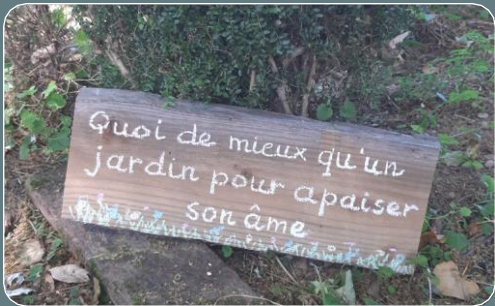 Quoi de mieux qu'un
jardin pour apaiser
son âme